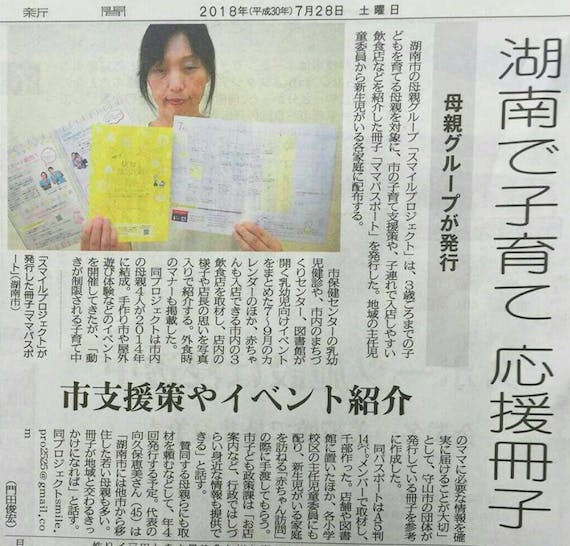 新聞 2018年(平成30年)7月28日 土曜日
湖南で子育て 応援冊子
母親グループが発行
湖南市の母親グループ「スマイルプロジェクト」は、3歳ごろまでの子
どもを育てる母親を対象に、市の子育て支援策や、子連れで入店しやすい
飲食店などを紹介した冊子「ママパスポート」を発行した。地域の主任児
童委員から新生児がいる各家庭に配布する。
「スマイルプロジェクト」が
発行した冊子「ママパスポ
ート」(湖南市)
市保健センターの乳幼
児健診や、市内のまちづ
くりセンター、図書館が
開く乳幼児向けイベント
をまとめた7～9月のカ
レンダーのほか、赤ちゃ
んも入店できる市内の3
飲食店を取材し、店内の
様子や店長の思いを写真
入りで紹介する。外食時
のマナーも掲載した。
同プロジェクトは市内
の母親4人が2014年
に結成。手作り市や屋外
遊び体験などのイベント
を開催してきたが、「動
きが制限される子育て中
市支援策やイベント紹介
のママに必要な情報を確
実に届けることが大切」
として、守山市の団体が
発行している冊子を参考
に作成した。
同パスポートはA5判
14㌻。メンバーで取材し、
千部作った。店舗や図書
館に置いたほか、各小学
校区の主任児童委員にも
配り、新生児がいる家庭
を訪ねる「赤ちゃん訪問」
の際に手渡してもらう。
市子ども政策課は「お店
案内など、行政ではしづ
らい身近な情報も提供で
きる」と話す。
賛同する母親らにも取
材を頼むなどして、年4
回発行する予定。代表の
向久保恵美さん(45)は
「湖南市には他市から移
住した若い母親も多い。
冊子が地域と交わるきっ
かけになれば」と話す。
同プロジェクトsmile.
pro2525@gmail.co
m
(門田俊宏)